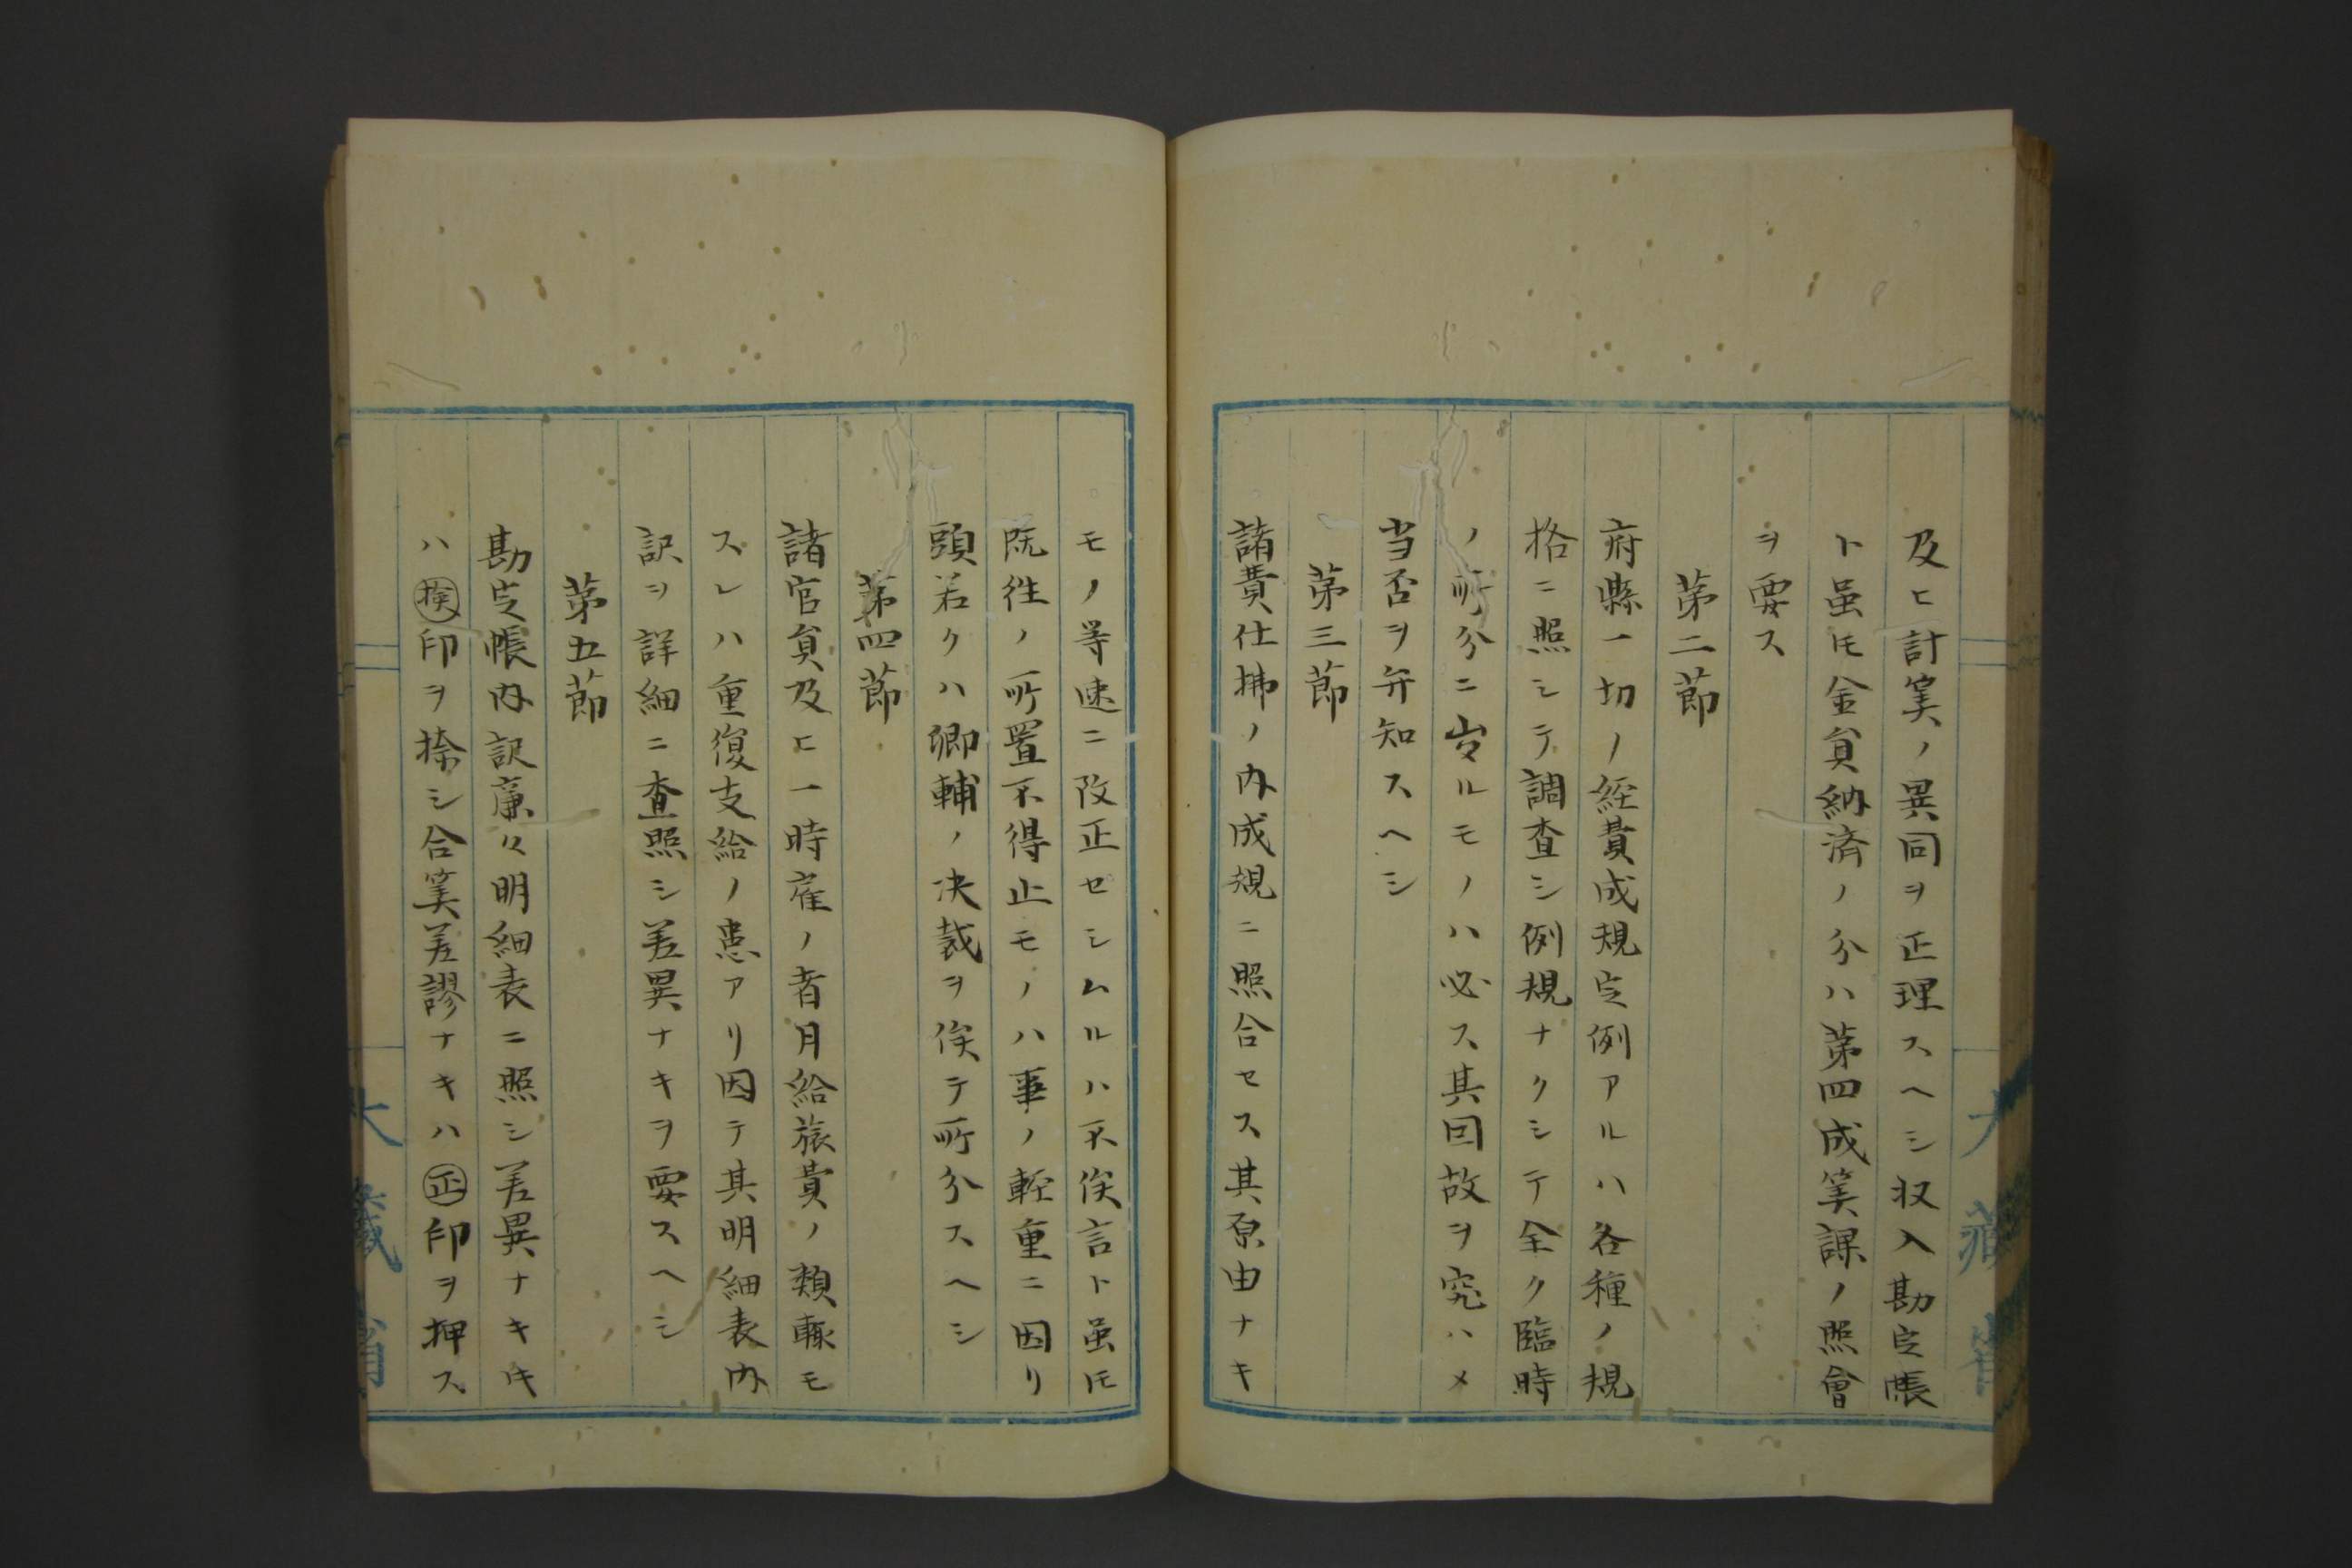 及ヒ計筭ノ異同ヲ正理スヘシ収入勘定帳
ト虽𪜈金貟納済ノ分ハ苐四成筭課ノ照會
ヲ要ス
苐二節
府縣一切ノ経費成規定例アルハ各種ノ規
格ニ照シテ調査シ例規ナクシテ全ク臨時
ノ所分ニ出ルモノハ必ス其囙故ヲ究ハメ
当否ヲ弁知スヘシ
苐三節
諸費仕拂ノ内成規ニ照合セス其原由ナキ
モノ等速ニ改正セシムルハ不俟言ト虽𪜈
既徃ノ所置不得止モノハ事ノ軽重ニ因リ
頭若クハ卿輔ノ决裁ヲ俟テ所分スヘシ
苐四節
諸官貟及ヒ一時雇ノ者月給旅費ノ類輙モ
スレハ重復支給ノ患アリ因テ其明細表内
訳ヲ詳細ニ査照シ差異ナキヲ要スヘシ
苐五節
勘定帳内訳廉々明細表ニ照シ差異ナキ𪜈
ハ㊞印ヲ捺シ合筭差謬ナキハ㊣印ヲ押ス
大藏省
大藏省